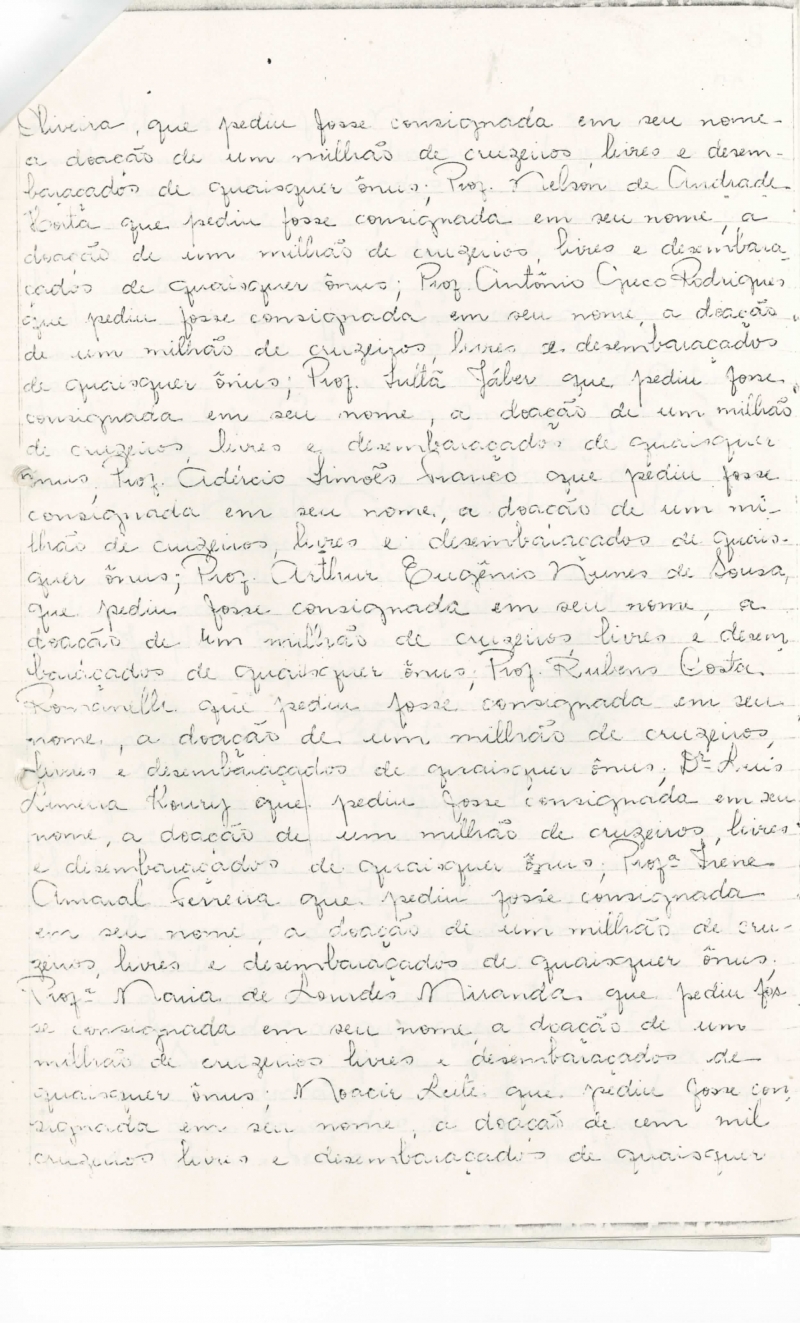 Oliveira, que pediu fosse consignada em seu nome
a doação de um milhão de cruzeiros, livres e desem-
baraçados de quaisquer ônus; Prof. Nelson de Andrade
que pediu fosse consignada em seu nome, a
doação de um milhão de cruzeiros, livres e desembara
çados de quaisquer ônus; Prof. Antônio Greco Rodrigues
que pediu fosse consignada em seu nome, a doação
de um milhão de cruzeiros, livres e desembaraçados
de quaisquer ônus; Prof. Jáber que pediu fosse
consignada em seu nome, a doação de um milhão
de cruzeiros, livres e desembaraçados de quaisquer
ônus, Prof. Adércio Simões Franco que pediu fosse
consignada em seu nome, a doação de um mi-
lhão de cruzeiros, livres e desembaraçados de quais-
quer ônus; Prof. Arthur Eugênio Nunes de Sousa,
que pediu fosse consignada em seu nome, a
doação de um milhão de cruzeiros, livres e desem
baraçados de quaisquer ônus; Prof. Rubens Costa
Romanelli que pediu fosse consignada em seu
nome, a doação de um milhão de cruzeiros,
livres e desembaraçados de quaisquer ônus; Dr. Luis
Koury que pediu fosse consignada em seu
nome, a doação de um milhão de cruzeiros, livres
e desembaraçados de quaisquer ônus; Profª Irene
Amaral Ferreira que pediu fosse consignada
em seu nome, a doação de um milhão de cru-
zeiros, livres e desembaraçados de quaisquer ônus;
Profª Maria de Lourdes Miranda que pediu fos
se consignada em seu nome, a doação de um
milhão de cruzeiros livres e desembaraçados de
quaisquer ônus; Moacir Leite que pediu fosse con
signada em seu nome, a doação de cem mil
cruzeiros livres e desembaraçados de quaisquer